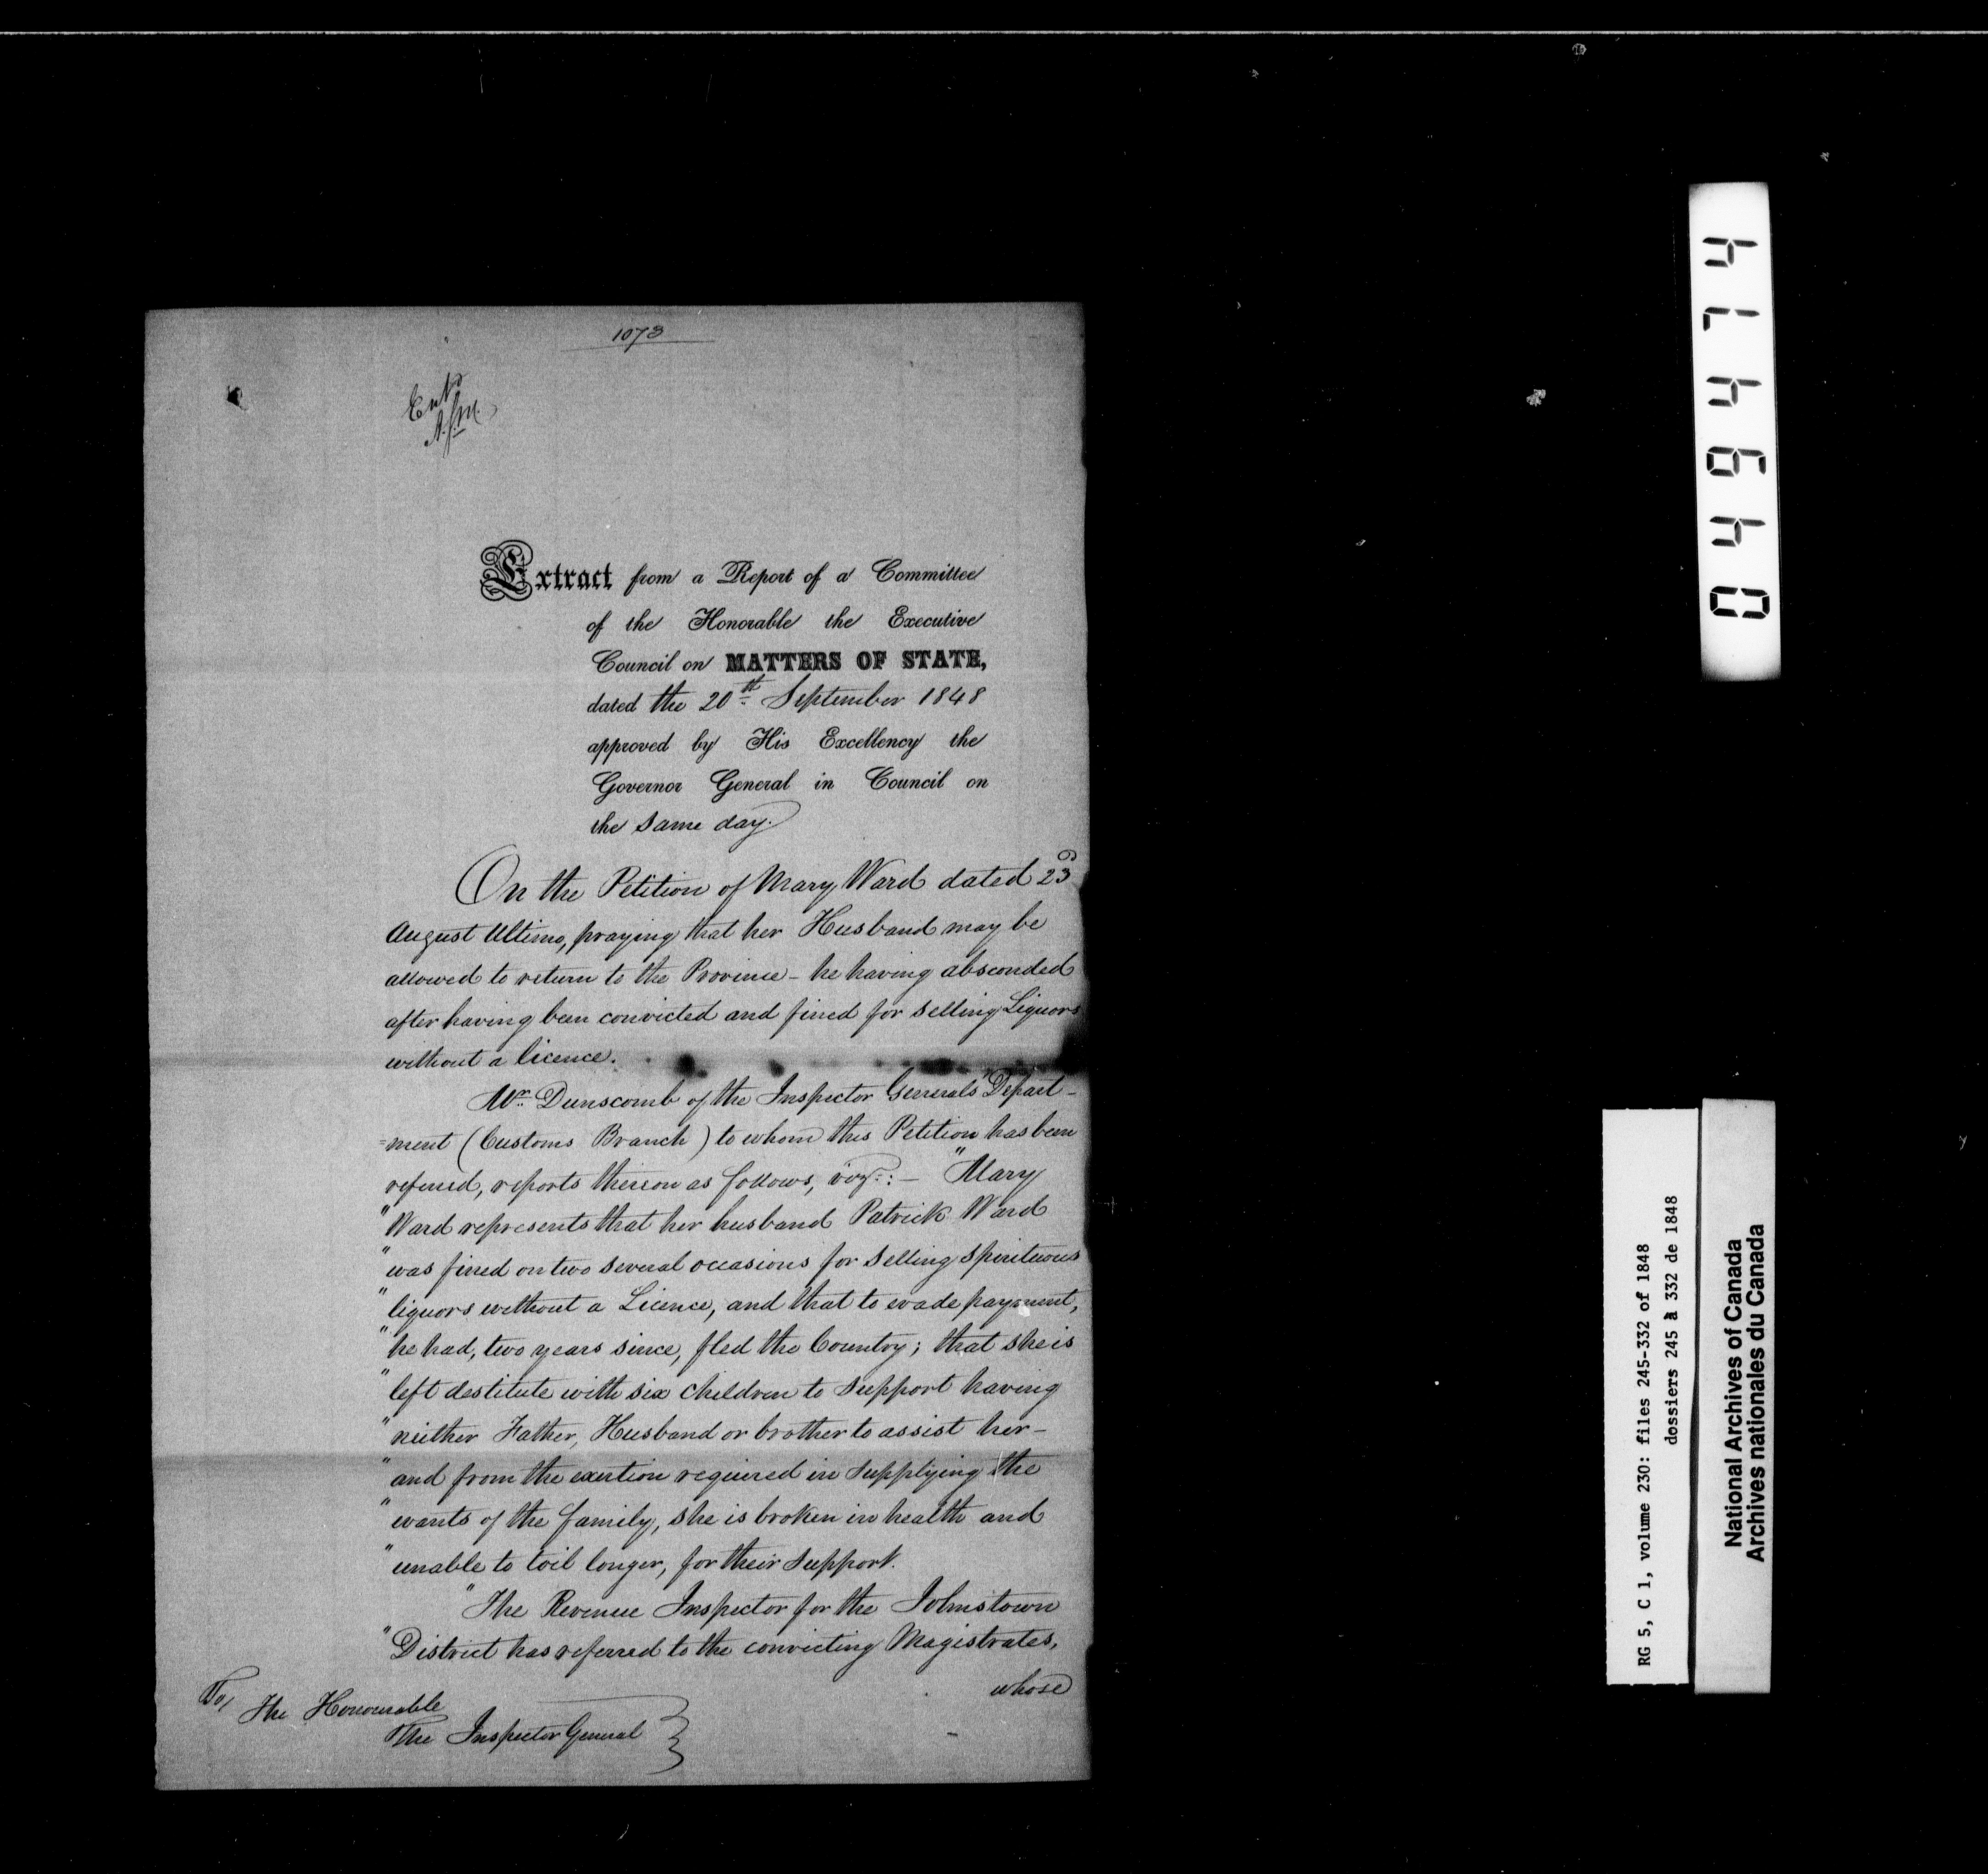 1073
Entd
A.J.M.
Extract from a Report of a Committee
of the Honorable the Executive
Council on MATTERS OF STATE,
dated the 20th September 1848
approved by His Excellency the
Governor General in Council on
the same day.
On the Petition of Mary Ward dated 23d
August Ultimo, praying that her Husband may be
allowed to return to the Province - he having absconded
after having been convicted and fined for selling Liquors
without a licence.
Mr. Dunscomb of the Inspector Generals Depart-
=ment (Customs Branch) to whom this Petition has been
referred, reports thereon as follows, vizt: - "Mary
"Ward represents that her husband Patrick Ward
"was fined on two several occasions for selling spirituous
"liquors without a Licence, and that to evade payment,
"he had, two years since, fled the Country; that she is
"left destitute with six children to support having
"neither Father, Husband or brother to assist her -
"and from the exertion required in supplying the
"wants of the family, she is broken in health and
"unable to toil longer, for their support.
"The Revenue Inspector for the Johnstown
"District has referred to the convicting Magistrates,
whose
To/ The Honourable
The Inspector General
044 6 4 7 4
RG 5, C 1, volume 230: files 245-332 of 1848
dossiers 245 à 332 de 1848
National Archives of Canada
Archives nationales du Canada